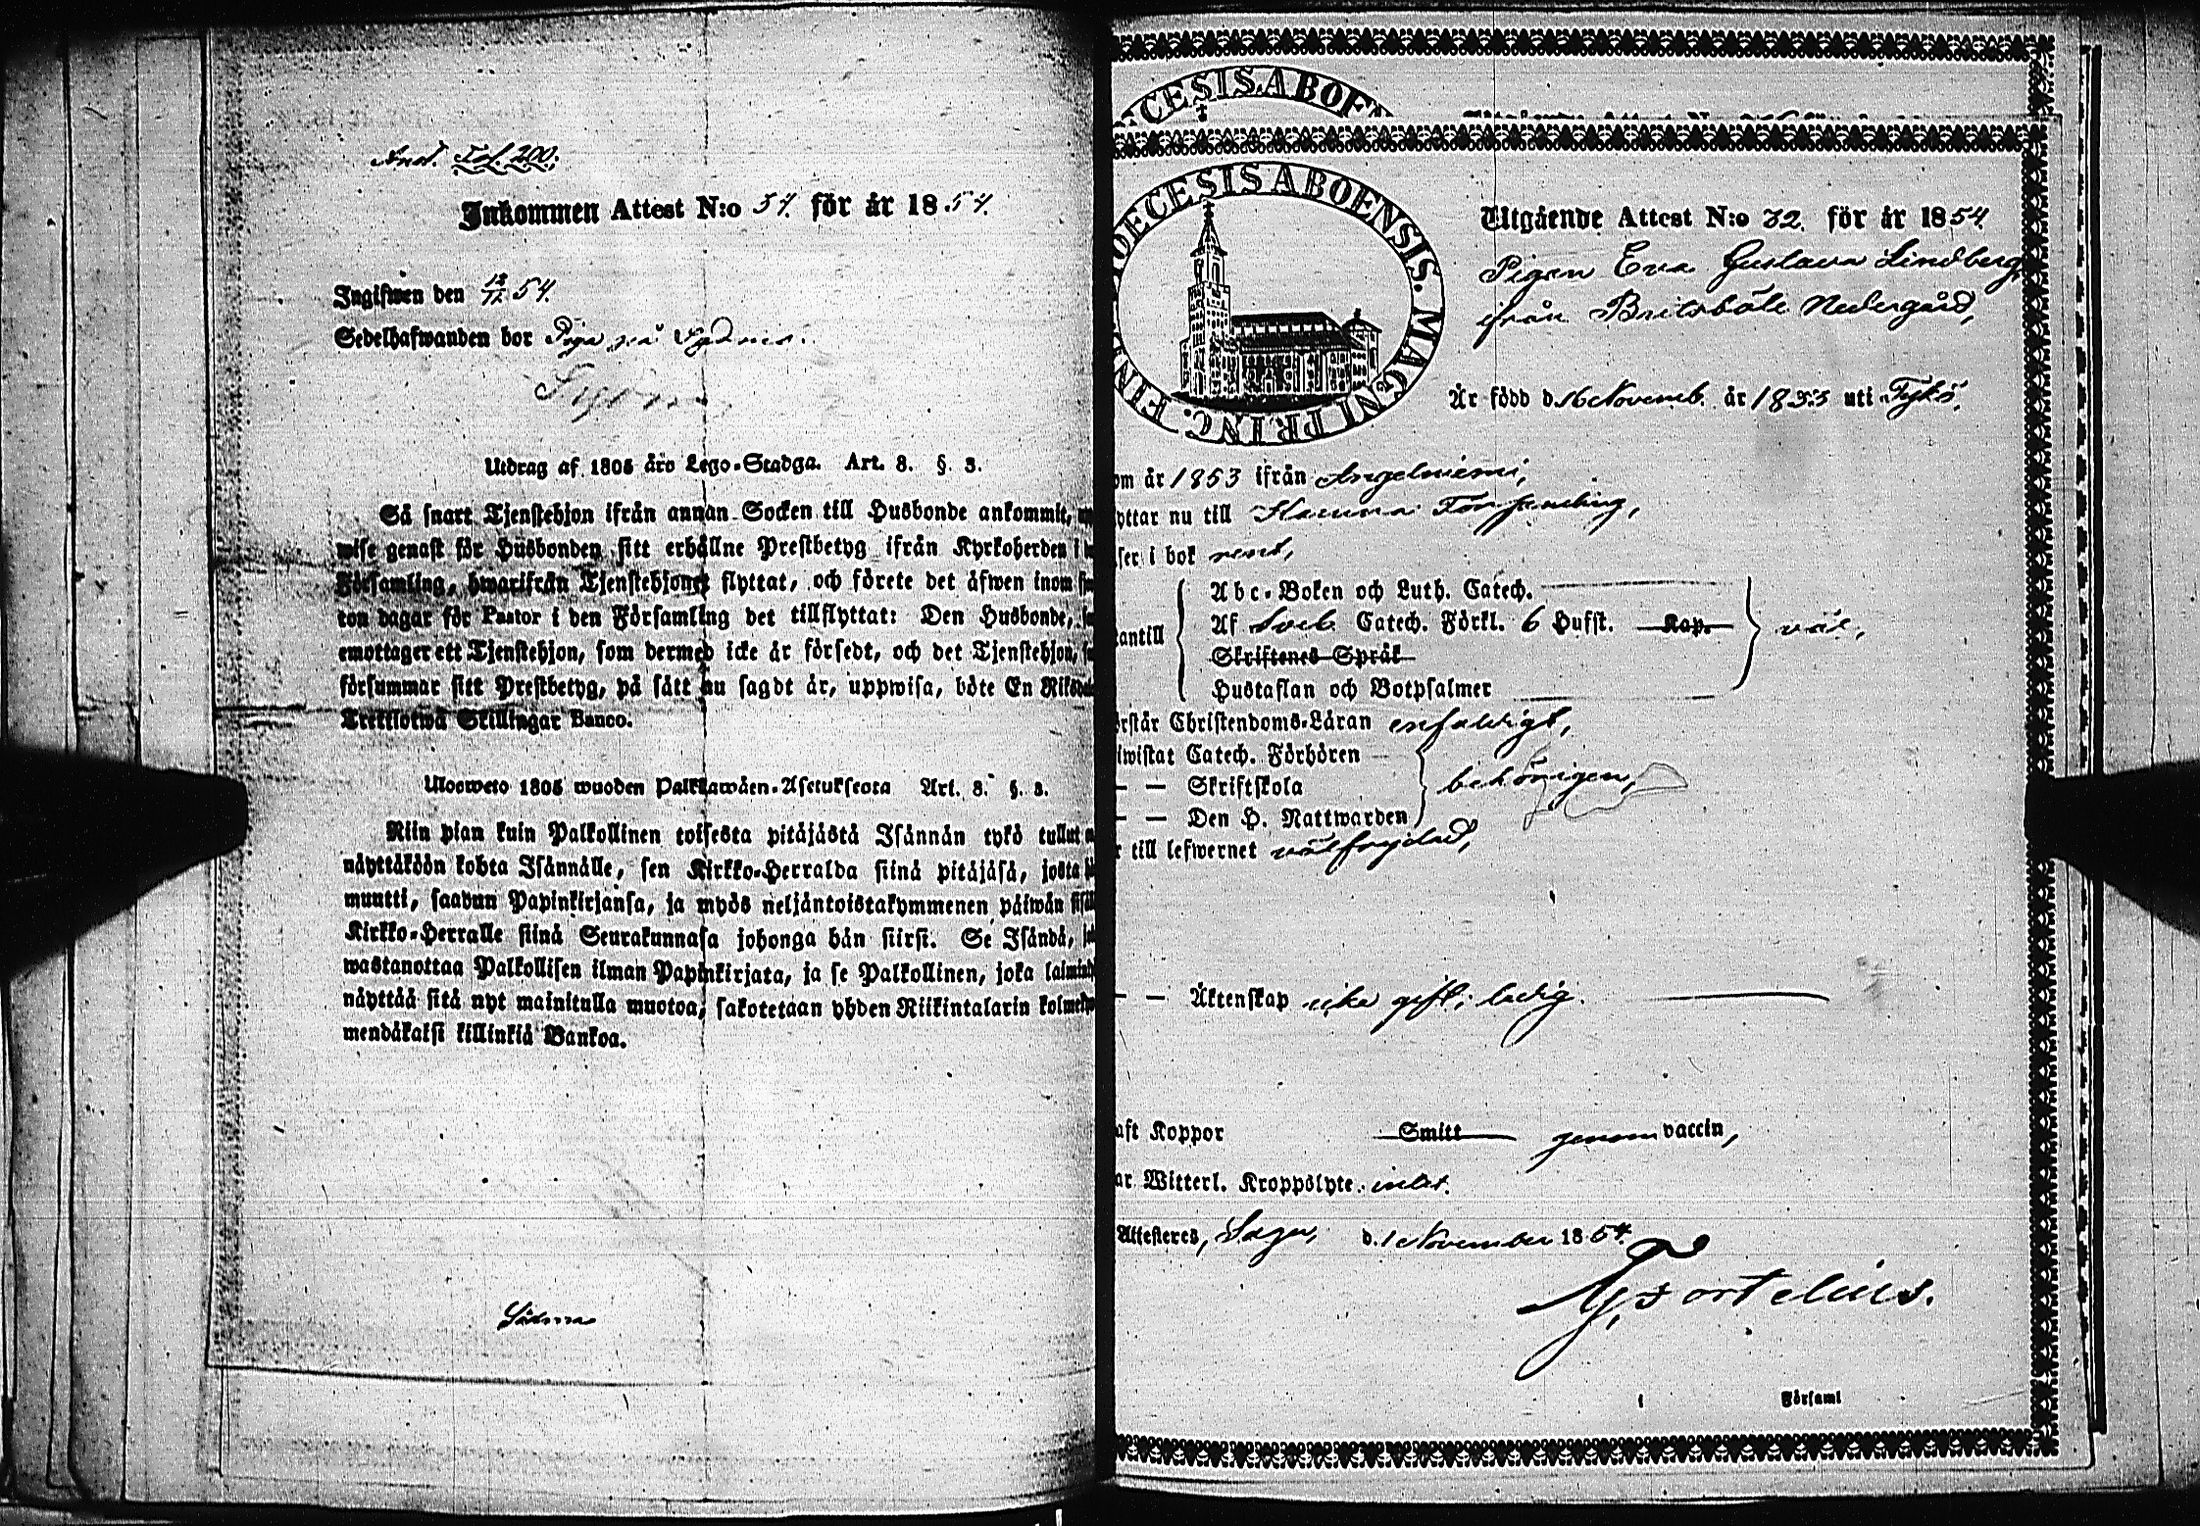 Fol. 200.
Inkommen Attest N:o 54. för år 1854.
Ingifwen den 12/12 54.
Sedelhafwanden bor Piga på
Utdrag af 1805 års Lego-Stadga. Art. 8. §. 3.
Så snart Tjenstehjon ifrån annan Socken till Husbonde ankommit,
wise genast för Husbonden sitt erhållne Prestbetyg ifrån Kyrkoherden i
Församling, hwarifrån Tjenstehjonet flyttat, och förete det äfwen inom
ton dagar för Pastor i den Församling det tillflyttat: Den Husbonde,
emottager ett Tjenstehjon, som dermed icke är försedt, och det Tjenstehjon,
försummar sitt Prestbetyg, på sätt nu sagdt är, uppwisa, böte En
Trettiotwå Skillingar Banco.
Ulosweto 1805 wuoden Palkkawäen-Asetuksesta Art. 8. §. 3.
Niin pian kuin Palkollinen toisesta pitäjästä Isännän tykö tullut
näyttäköön kohta Isännälle, sen Kirkko-Herralda siinä pitäjäsä, josta
muutti, saadun Papinkirjansa, ja myös neljäntoistakymmenen päiwän
Kirkko-Herralle siinä Seurakunnasa johonga hän siirsi. Se Isändä,
wastanottaa Palkollisen ilman Papinkirjata, ja se Palkollinen, joka
näyttää sitä nyt mainitulla muotoa, sakotetaan yhden Riikintalarin
mendäkaksi killinkiä Bankoa.
CESIS ABOEN
DIOECESIS ABOENSIS. MAGNI PRINC. FIN
Utgående Attest N:o 32. för år 1854.
Pigan Eva Gustava Lindberg
ifrån Britsböle Nedergård,
Är född d. 16 Novemb. år 1833 uti Tykö.
om år 1853 ifrån Angelniemi,
yttar nu till Karuna Församling,
ser i bok rent,
Abc-Boken och Luth. Catech.
antill Af Sveb. Catech. Förkl. 6 Hufst. Kap. väl,
Skriftenes Språk
Hustaflan och Botpsalmer
rstår Christendoms-Läran enfaldigt,
iwistat Catech. Förhören
— — Skriftskola behörigen,
— — Den H. Nattwarden
r till lefwernet välfrejdad,
— — Äktenskap icke gift; ledig.
aft Koppor Smitt genom vaccin,
ar Witterl. Kroppslyte intet.
Attesteres, Sagu, d. 1 November 1854.
Församl